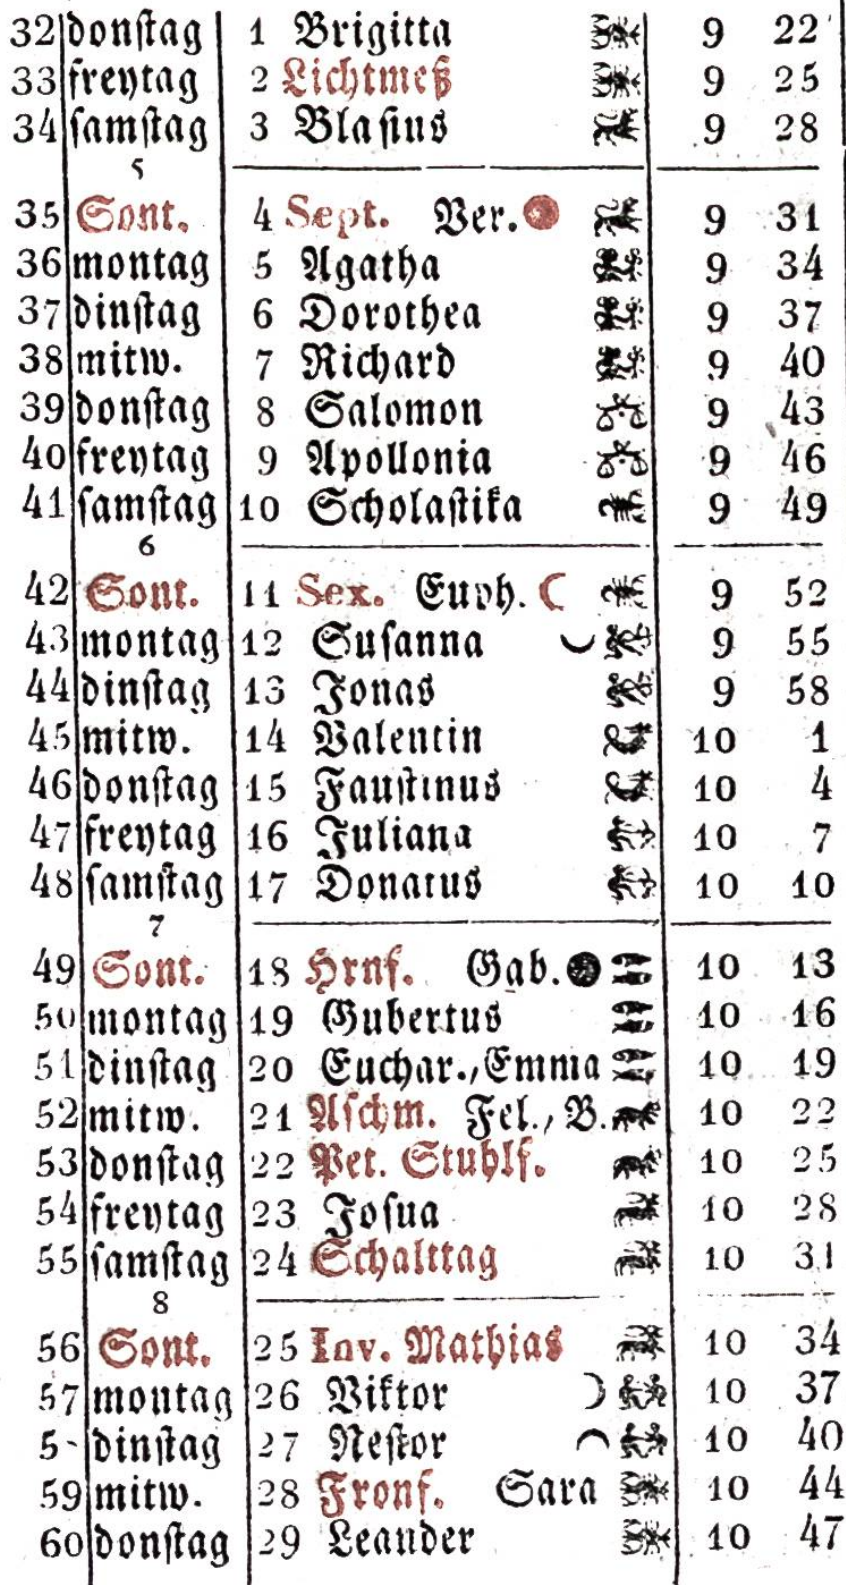 32 donſtag 1 Brigitta 9 22
33 freytag 2 Lichtmeß 9 25
34 ſamſtag 3 Blaſius 9 28
5
35 Sont. 4 Sept. Ver. 9 31
36 montag 5 Agatha 9 34
37 dinſtag 6 Dorothea 9 37
38 mitw. 7 Richard 9 40
39 donſtag 8 Salomon 9 43
40 freytag 9 Apollonia 9 46
41 ſamſtag 10 Scholaſtika 9 49
6
42 Sont. 11 Sex. Euph. ☾ 9 52
43 montag 12 Suſanna 9 55
44 dinſtag 13 Jonas 9 58
45 mitw. 14 Valentin 10 1
46 donſtag 15 Fauſtinus 10 4
47 freytag 16 Juliana 10 7
48 ſamſtag 17 Donatus 10 10
7
49 Sont. 18 Hrnf. Gab. 10 13
50 montag 19 Gubertus 10 16
51 dinſtag 20 Euchar., Emma 10 19
52 mitw. 21 Aſchm. Fel., B. 10 22
53 donſtag 22 Pet. Stuhlf. 10 25
54 freytag 23 Joſua 10 28
55 ſamſtag 24 Schalttag 10 31
8
56 Sont. 25 Inv. Mathias 10 34
57 montag 26 Viktor 10 37
5 dinſtag 27 Neſtor 10 40
59 mitw. 28 Fronf. Sara 10 44
60 donſtag 29 Leander 10 47